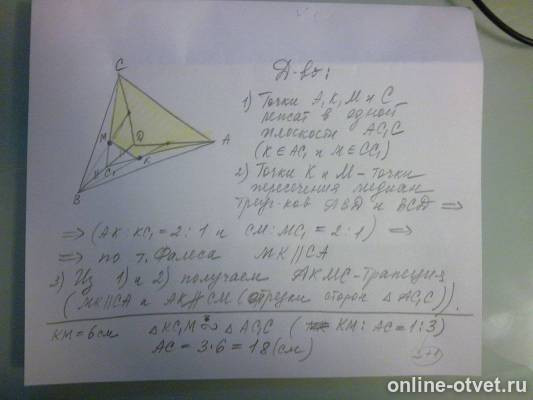 C
M
D
A
K
C₁
B
Д-во:
1) Точки A, K, M и C
лежат в одной
плоскости AC₁C
(K ∈ AC₁ и M ∈ CC₁)
2) Точки K и M – точки
пересечения медиан
треуг-ков ABD и BCD ⇒
⇒ (AK : KC₁ = 2 : 1 и CM : MC₁ = 2 : 1) ⇒
⇒ по т. Фалеса MK || CA
3) Из 1) и 2) получаем AKMC – трапеция
(MK || CA и AK ∦ CM (отрезки сторон △ AC₁C)).
KM = 6 см △ KC₁M ∾ △ AC₁C ( KM : AC = 1 : 3)
AC = 3 · 6 = 18 (см)
online-otvet.ru